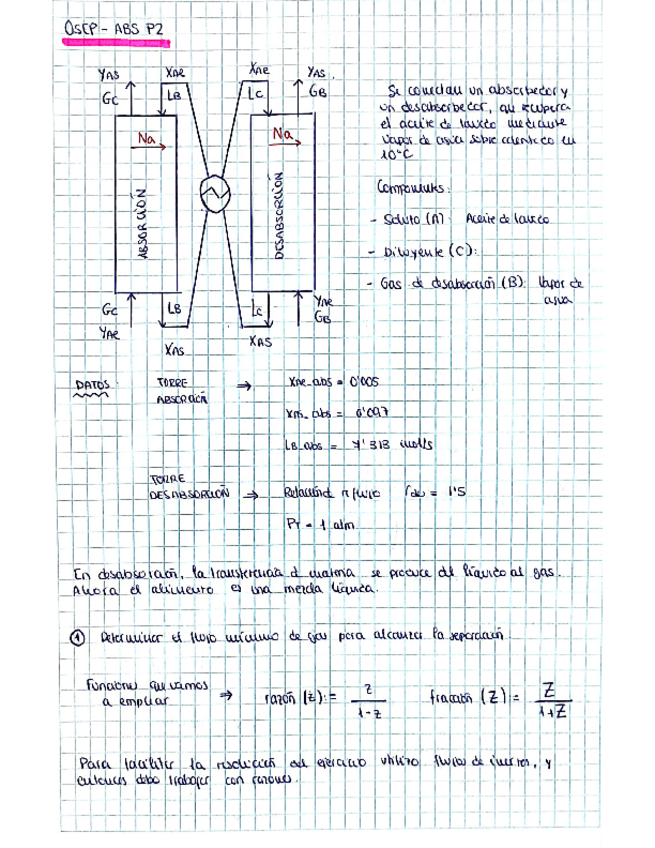 OSEP - ABS P2
YAS XAe XAe YAS.
GC LB LC GB
Na Na
ABSORCIÓN
DESABSORCIÓN
GC LB LC YAe GB
YAe XAS XAS
Se conectan un absorbedor y
un desabsorbedor, que recupera
el aceite de lavado mediante
vapor de agua sobre calentado
10°C
Componentes:
- Soluto (A): Aceite de lavado
- Diluyente (C):
- Gas de desabsorción (B): Vapor de
agua
DATOS: TORRE ABSORCIÓN → XAe_abs = 0'005
_abs = 0'097
LB_abs = 7'313 mol/s
TORRE DESABSORCIÓN → Relación reflujo = 1'5
PT = 1 atm
En desabsorción, la transferencia d materia se produce del líquido al gas.
Ahora el alimento es una mezcla líquida.
① Determinar el flujo mínimo de gas para alcanzar la separación.
Funciones que vamos
a emplear → razón (z) := z / 1-z fracción (Z) := Z / 1+Z
Para facilitar la resolución del ejercicio utilizo flujos de inertes, y
entonces debo trabajar con razones.